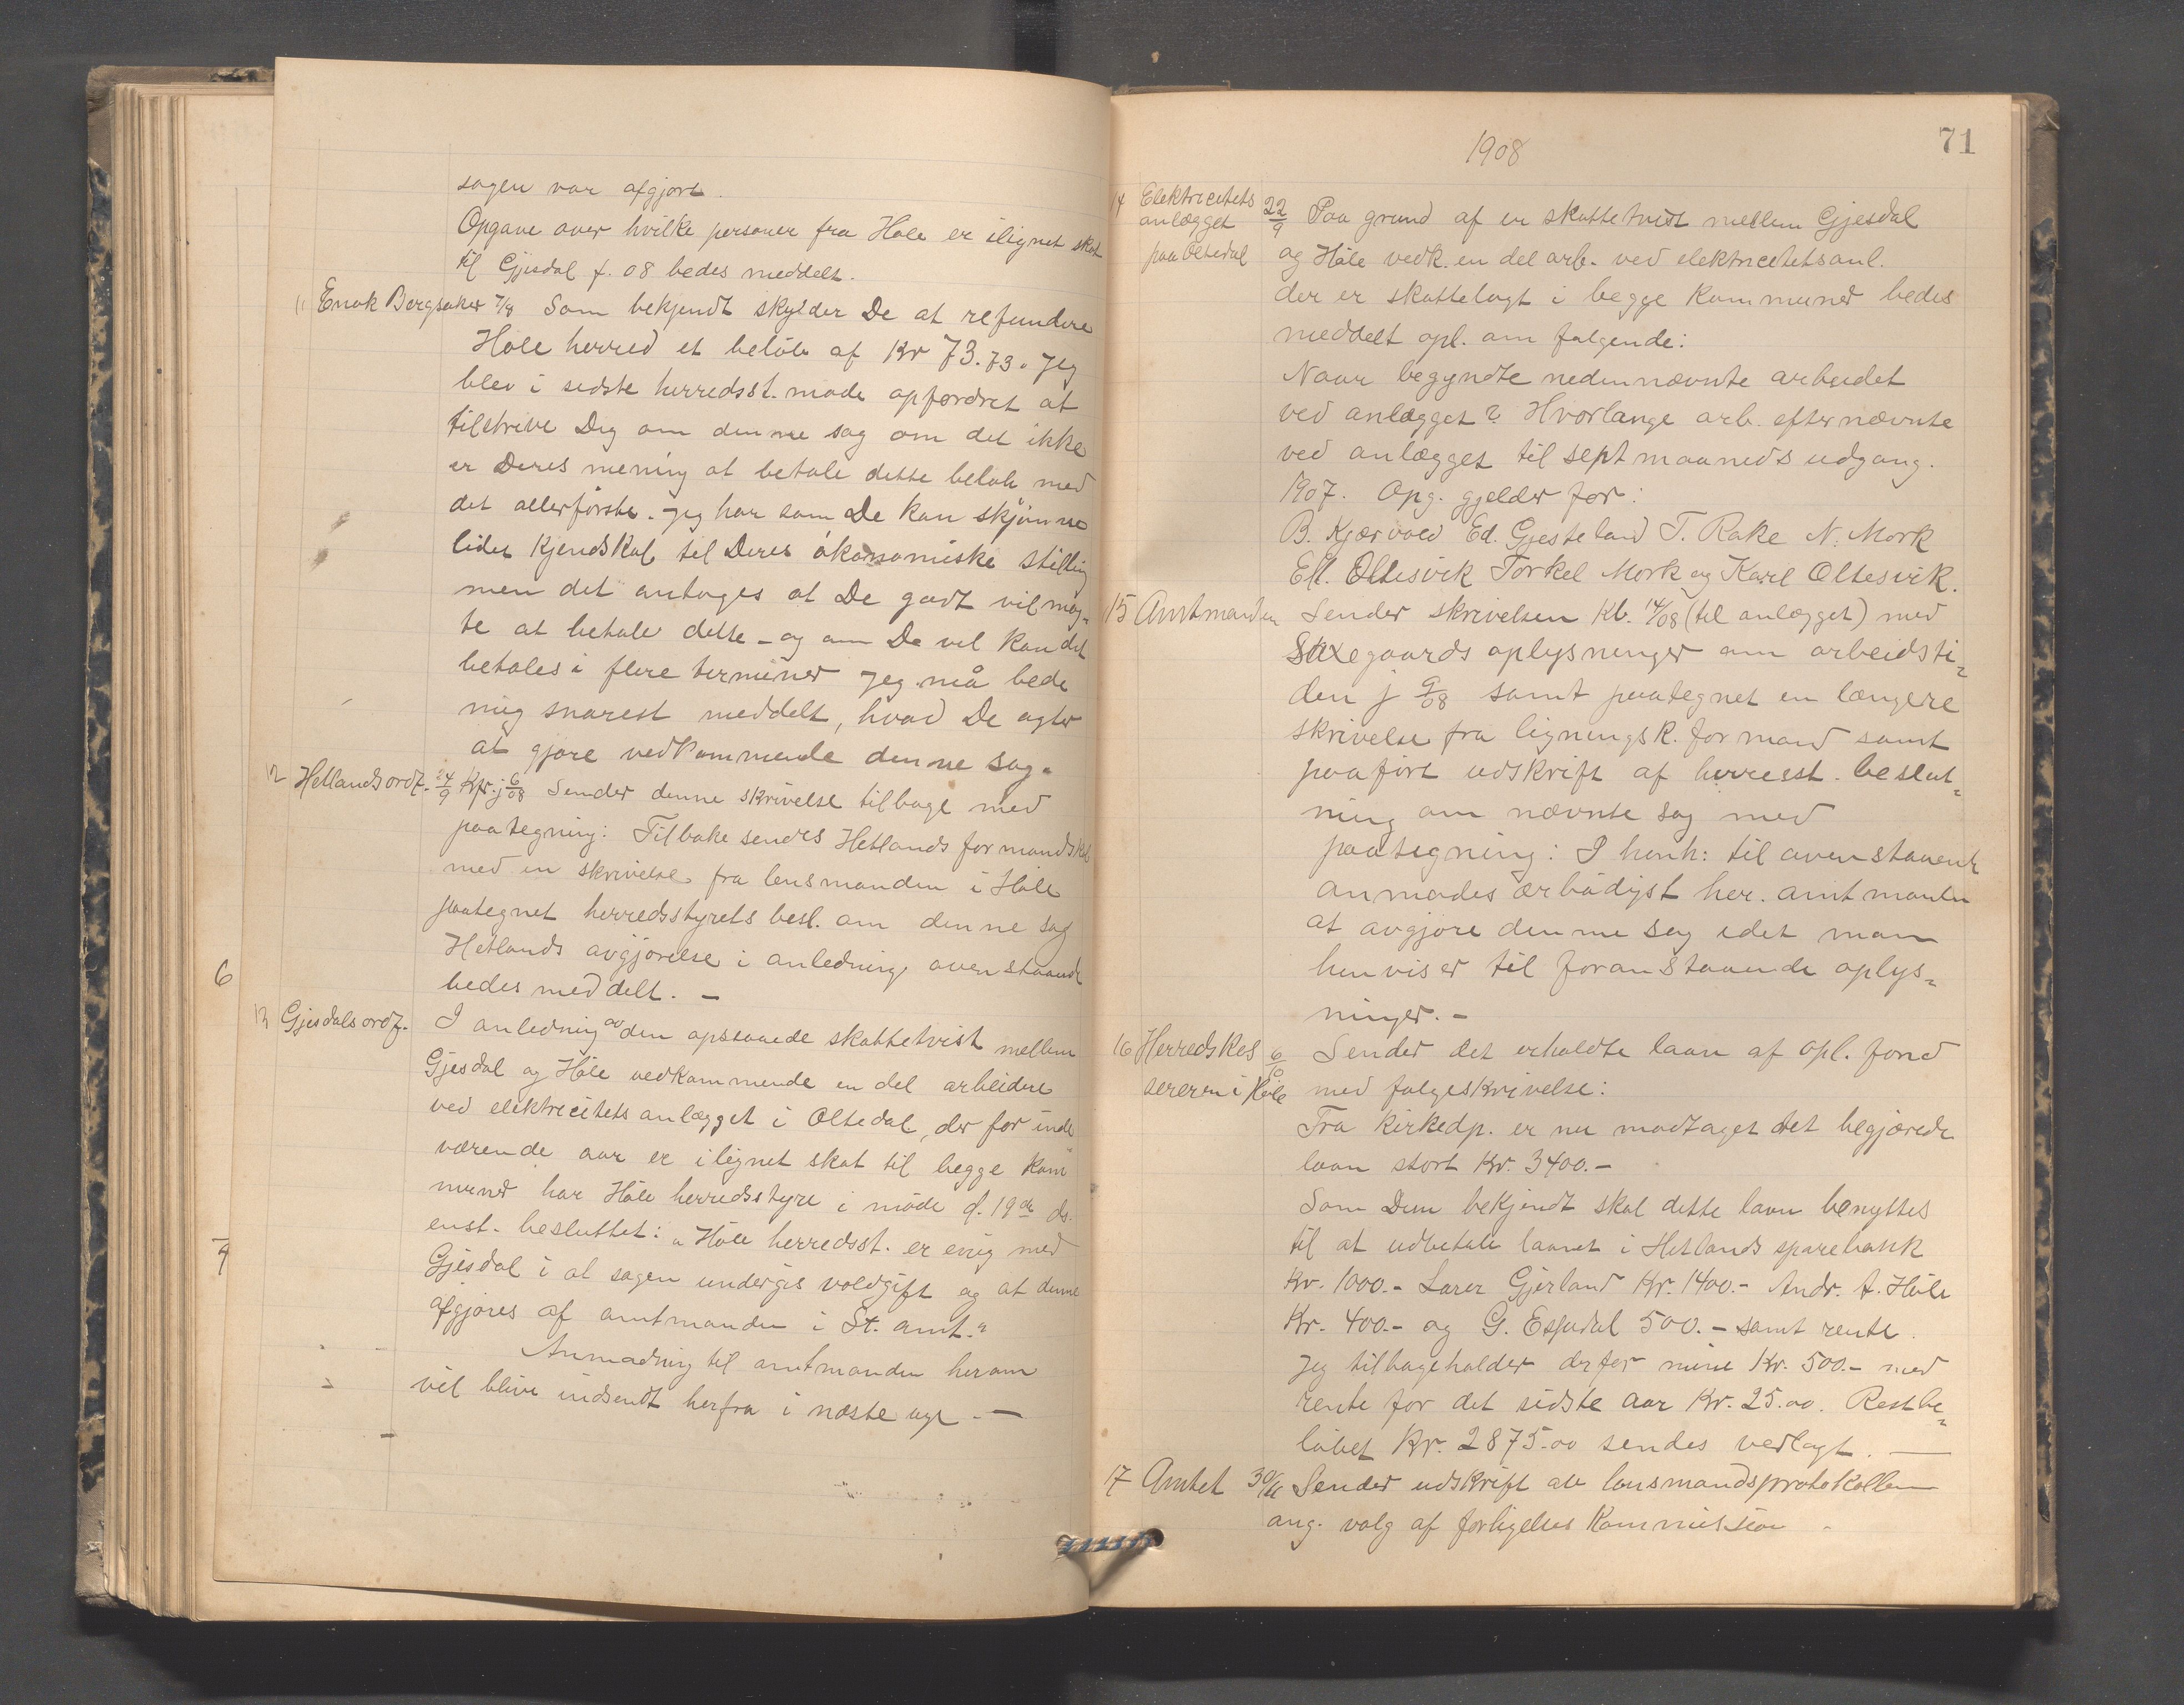 sagen var afgjort.
Opgave over hvilke personer fra Høle er ilignet skat
til Gjesdal f. 08 bedes meddelt.
11 Enok Bergsaker 7/8 Som bekjendt skylder De at refundere
Høle herred et beløb af Kr 73.73. Jeg
blev i sidste herredsst. møde opfordret at
tilskrive Dig om denne sag om det ikke
er Deres mening at betale dette beløb med
det allerførste. Jeg har som De kan skjønne
lidet kjendskab til Deres økonomiske stilling
men det antages at De godt vil mag-
te at betale dette - og om De vil kan det
betales i flere terminer Jeg må bede
mig snarest meddelt, hvad De agter
at gjøre vedkommende denne sag.
12 Hetlands ordf. 24/9 Kfr. j 6/08 Sender denne skrivelse tilbage med
paategning: Tilbake sendes Hetlands formandskb
med en skrivelse fra lensmanden i Høle
paategnet herredsstyrets besl. om denne sag
Hetlands avgjørelse i anledning ovenstaaende
6
bedes meddelt. -
13 Gjesdals ordf. I anledning av den opstaaede skattetvist mellem
Gjesdal og Høle vedkommende en del arbeidere
ved elektricitetsanlægget i Oltedal, der for inde
værende aar er ilignet skat til begge kom
muner har Høle herredsstyre i møde d. 19de ds.
enst. besluttet: "Høle herredsst. er enig med
9
Gjesdal i at sagen undergis voldgift og at denne
afgjøres af amtmanden i St. amt."
Anmodning til amtmanden herom
vil blive indsendt herfra i næste uge. -
71
1908
14 Elektricitets
anlægget
paa Oltedal
22/9 Paa grund af en skattetvist mellem Gjesdal
og Høle vedk. en del arb. ved elektricitetsanl.
der er skattelagt i begge kommuner bedes
meddelt opl. om følgende:
Naar begyndte nedennævnte arbeidet
ved anlægget? Hvorlænge arb. efternævnte
ved anlægget til sept maaneds udgang.
1907. Opg. gjelder for:
B. Kjærvold Ed. Gjesteland T. Rake N. Mork
Ell. Oltesvik Torkel Mork og Karl Oltesvik.
15 Amtmanden Sender skrivelsen Kb. 14/08 (til anlægget) med
Saxegaards oplysninger om arbeidsti-
den j 9/08 samt paategnet en længere
skrivelse fra ligningsk. formand samt
paaført udskrift af herresst. beslut-
ning om nævnte sag med
paategning: I henh: til ovenstaaende
anmodes ærbødigst her. amtmanden
at avgjøre denne sag idet man
henviser til foranstaaende oplys-
ninger. -
16 Herredskas
sereren i Høle
6/10 Sender det erholdte laan af opl. fond
med følgeskrivelse:
Fra kirkedp. er nu modtaget det begjærede
laan stort Kr. 3400.-
Som Dem bekjendt skal dette laan benyttes
til at udbetale laanet i Hetlands sparebank
Kr. 1000.- Lærer Gjerland Kr. 1400.- Andr. A. Høle
Kr. 400.- og G. Espedal 500.- samt rente.
Jeg tilbageholder derfor mine Kr. 500.- med
rente for det sidste aar Kr. 25.00. Restbe-
løbet Kr. 2875.00 sendes vedlagt. -
17 Amtet 30/11 Sender udskrift av lensmandsprotokollen
ang. valg af forligelses kommission.